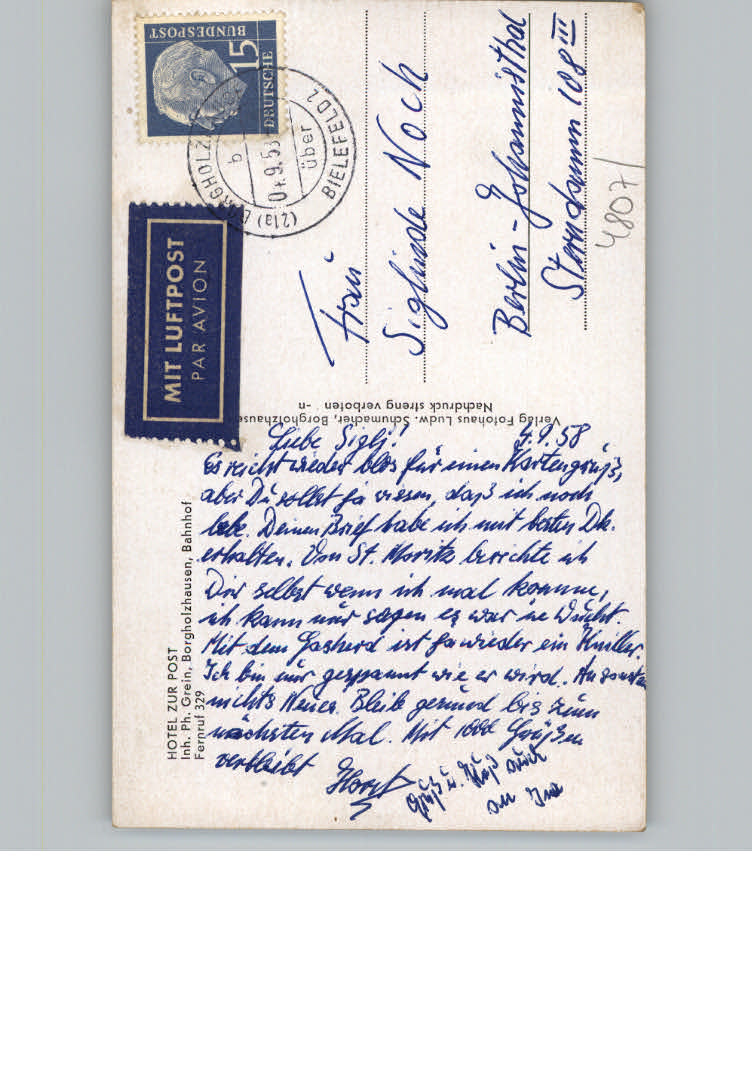 DEUTSCHE
BUNDESPOST
15
(21a) BORGHOLZ
über
BIELEFELD 2
b
9.58
MIT LUFTPOST
PAR AVION
Frau
Siglinde Noch
Berlin-Johannisthal
Sterndamm 108 III
4807/
Verlag Fotohaus Ludw. Schumacher, Borgholzhause
Nachdruck streng verboten -n
HOTEL ZUR POST
Inh. Ph. Grein, Borgholzhausen, Bahnhof
Fernruf 329
Liebe Sigli! 4.9.58
Es reicht wieder blos für einen Kartengruß,
aber Du sollst ja wissen, daß ich noch
lebe. Deinen Brief habe ich mit besten Dk.
erhalten. Von St. Moritz berichte ich
Dir selbst wenn ich mal komme,
ich kann nur sagen es war ne Wucht.
Mit dem Gasherd ist ja wieder ein Knüller.
Ich bin nur gespannt wie er wird. Ansonsten
nichts Neues. Bleib gesund bis zum
nächsten Mal. Mit 1000 Grüßen
verbleibt Horst
Gruß u. Kuß auch
an